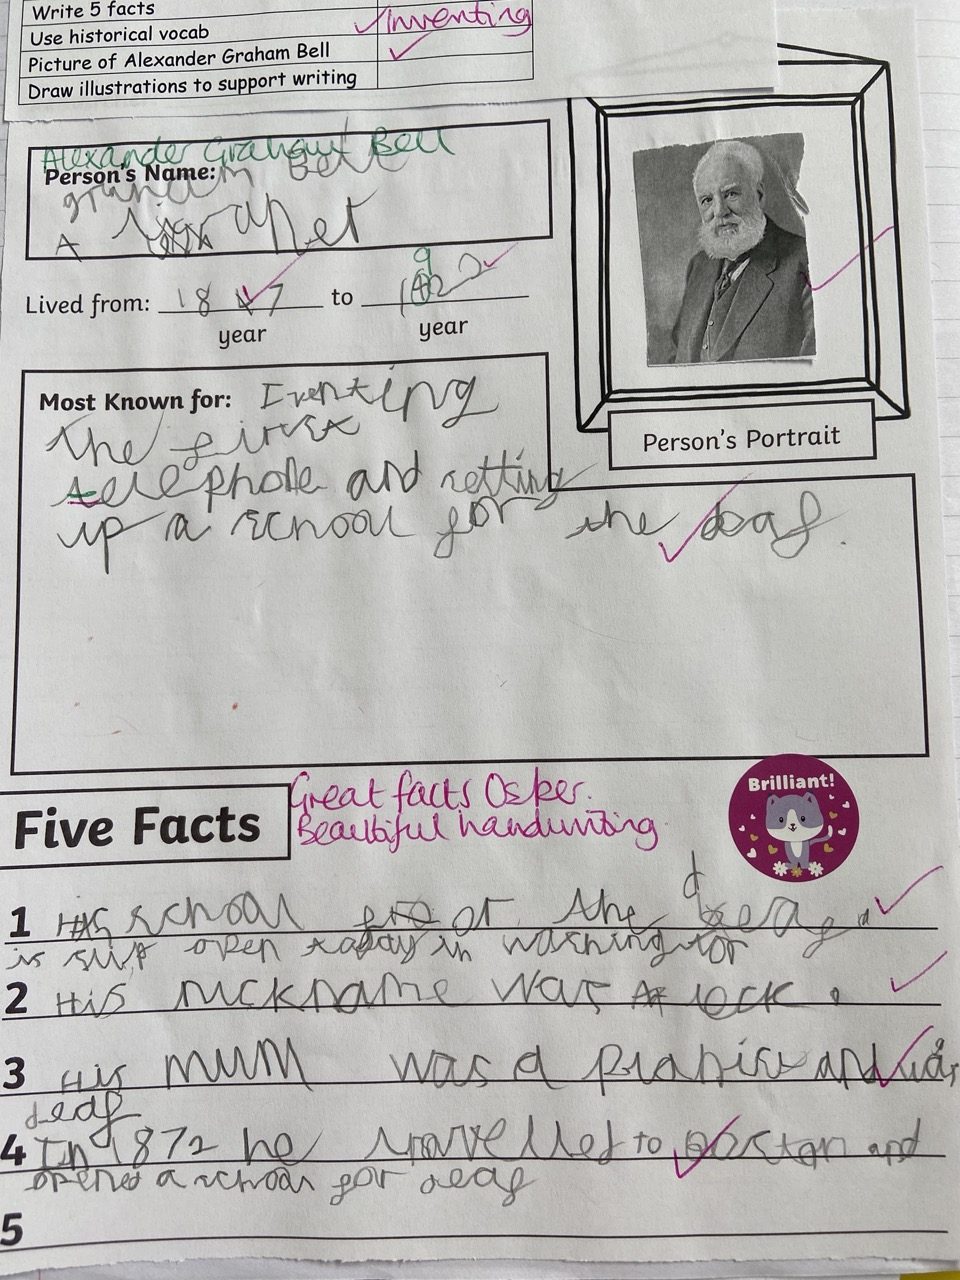 Write 5 facts
Use historical vocab
✓Inventing
Picture of Alexander Graham Bell
✓
Draw illustrations to support writing
Alexander Graham Bell
Person's Name:
graham Bell
A
Lived from: 1847 to 1922
year year
Person's Portrait
Most Known for: Iventing
the first
telephone and setting
up a school for the deaf.
Five Facts
Great facts Osker.
Beautiful handwriting.
Brilliant!
1 His school for the deaf
is still open today in washington
2 His nickname was Aleck.
3 His mum was a pianist and was
deaf
4 In 1872 he travelled to Boston and
opened a school for deaf
5